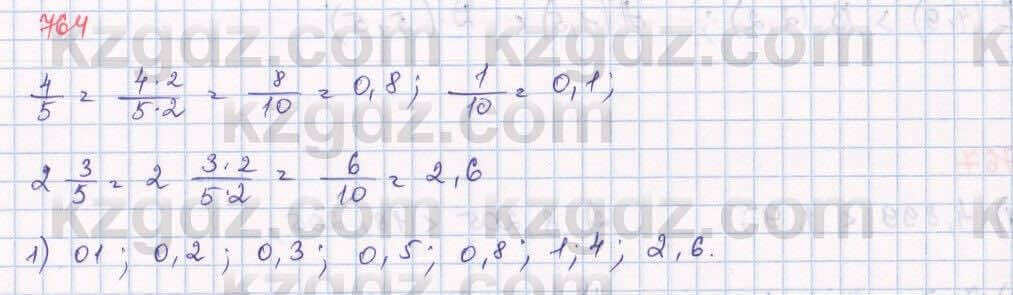 764
4/5 = 4·2/5·2 = 8/10 = 0,8; 1/10 = 0,1;
2 3/5 = 2 3·2/5·2 = 6/10 = 2,6
1) 01; 0,2; 0,3; 0,5; 0,8; 1;4; 2,6.
kzgdz.com
kzgdz.com
kzgdz.com
kzgdz.com
kzgdz.com